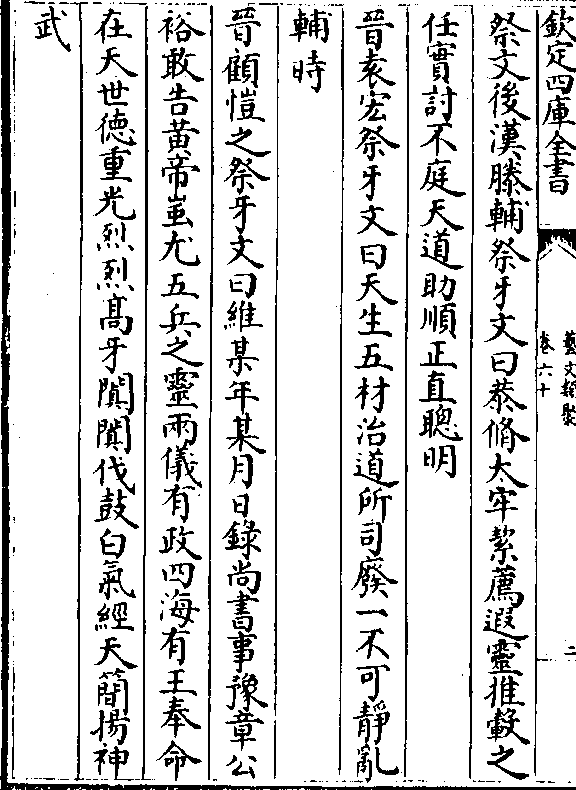 欽定四庫全書
藝文類聚
卷六十
二
祭文後漢滕輔祭牙文曰恭脩太牢絜薦遐靈推轂之
任實討不庭天道助順正直聰明
晉袁宏祭牙文曰天生五材治道所司廢一不可靜亂
輔時
晉顧愷之祭牙文曰維某年某月日錄尚書事豫章公
裕敢告黄帝蚩尤五兵之靈兩儀有政四海有王奉命
在天世徳重光烈烈髙牙闐闐伐鼓白氣經天簡揚神
武